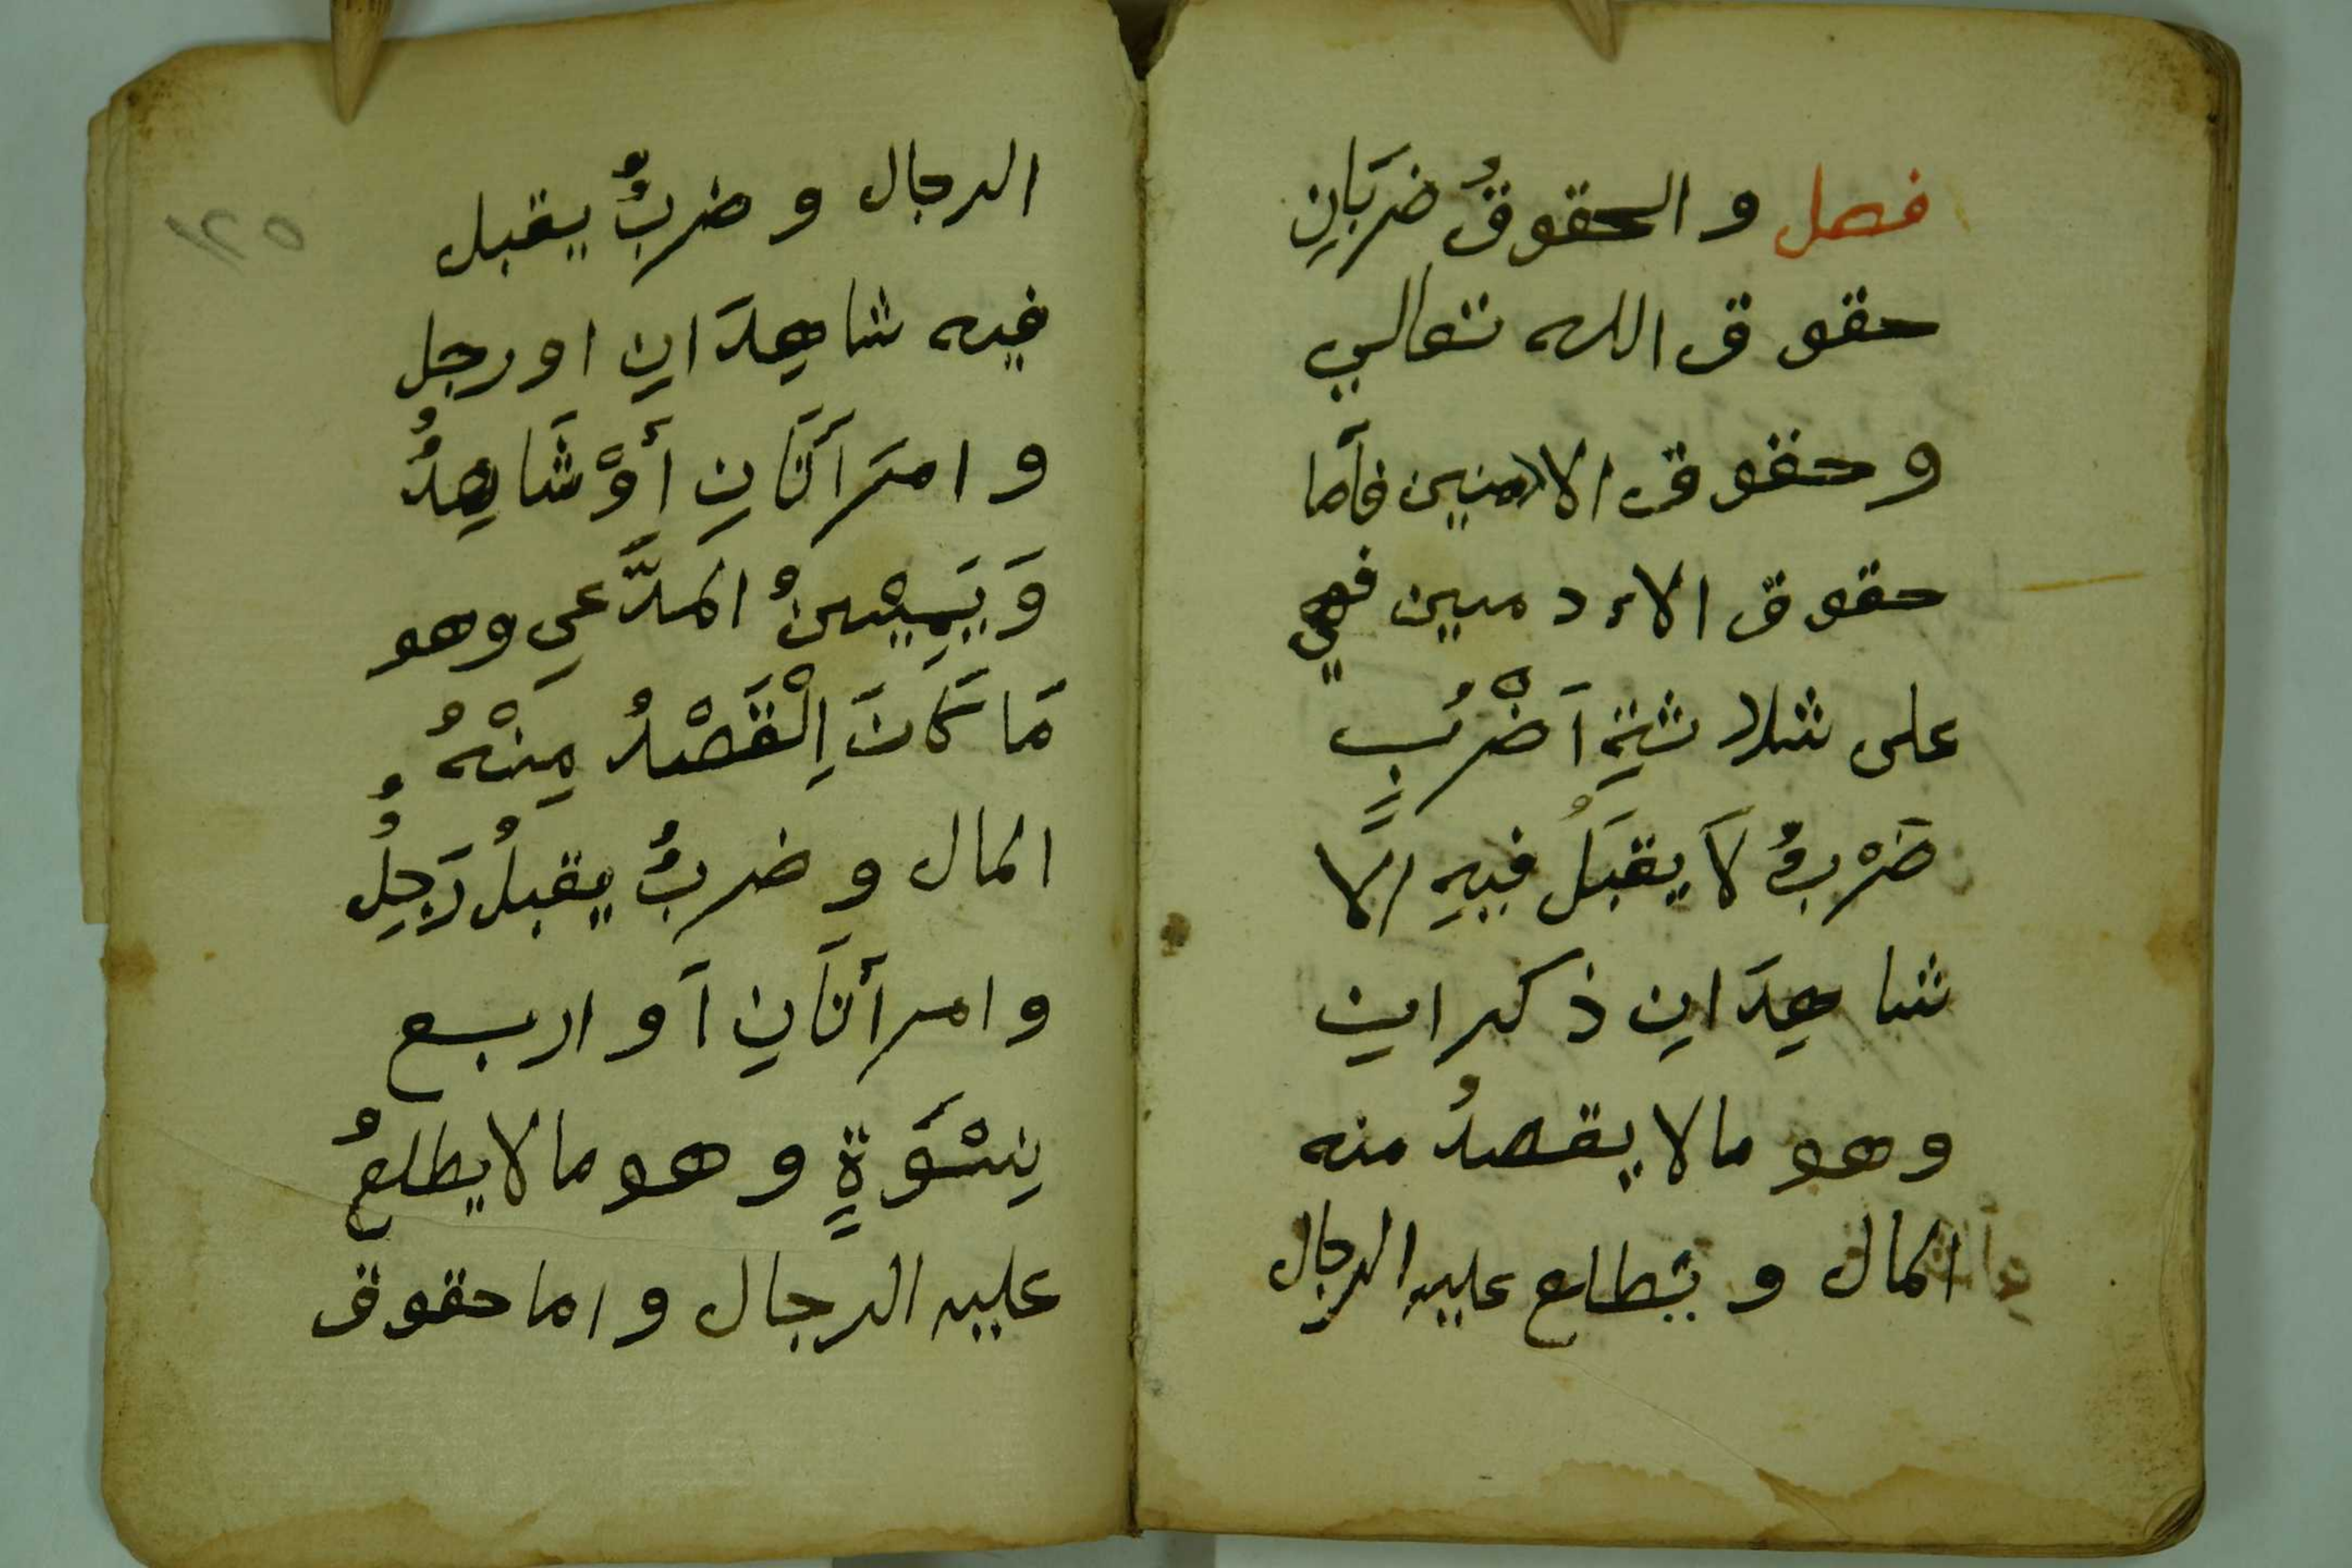 فصل والحقوقُ ضربَانِ
حقوق الله تعالي
وحقوق الادمنين فأما
حقوق الاءدميين فهي
على ثلاثةِ اَضْرُبٍ
ضَرْبٌ لَا يقبَلُ فيهِ الا
شاهِدَانِ ذكران
وهو مالا يقصدُ منه
المال ويطلع عليه الرجال
الرجال وضربٌ يقبل
فيه شاهِدَانِ او رجل
وامرَأتَانِ أوْ شَاهِدٌ
وَيَمِيْنُ المدَّعي وهو
مَا كَانَ اِلْقَصْدُ مِنْهُ
المال وضربٌ يقبلُ رَجِلٌ
وامرأتَانِ اَو اربع
نِسْوَةٍ وهو مالا يطلعُ
عليه الرجال واما حقوق